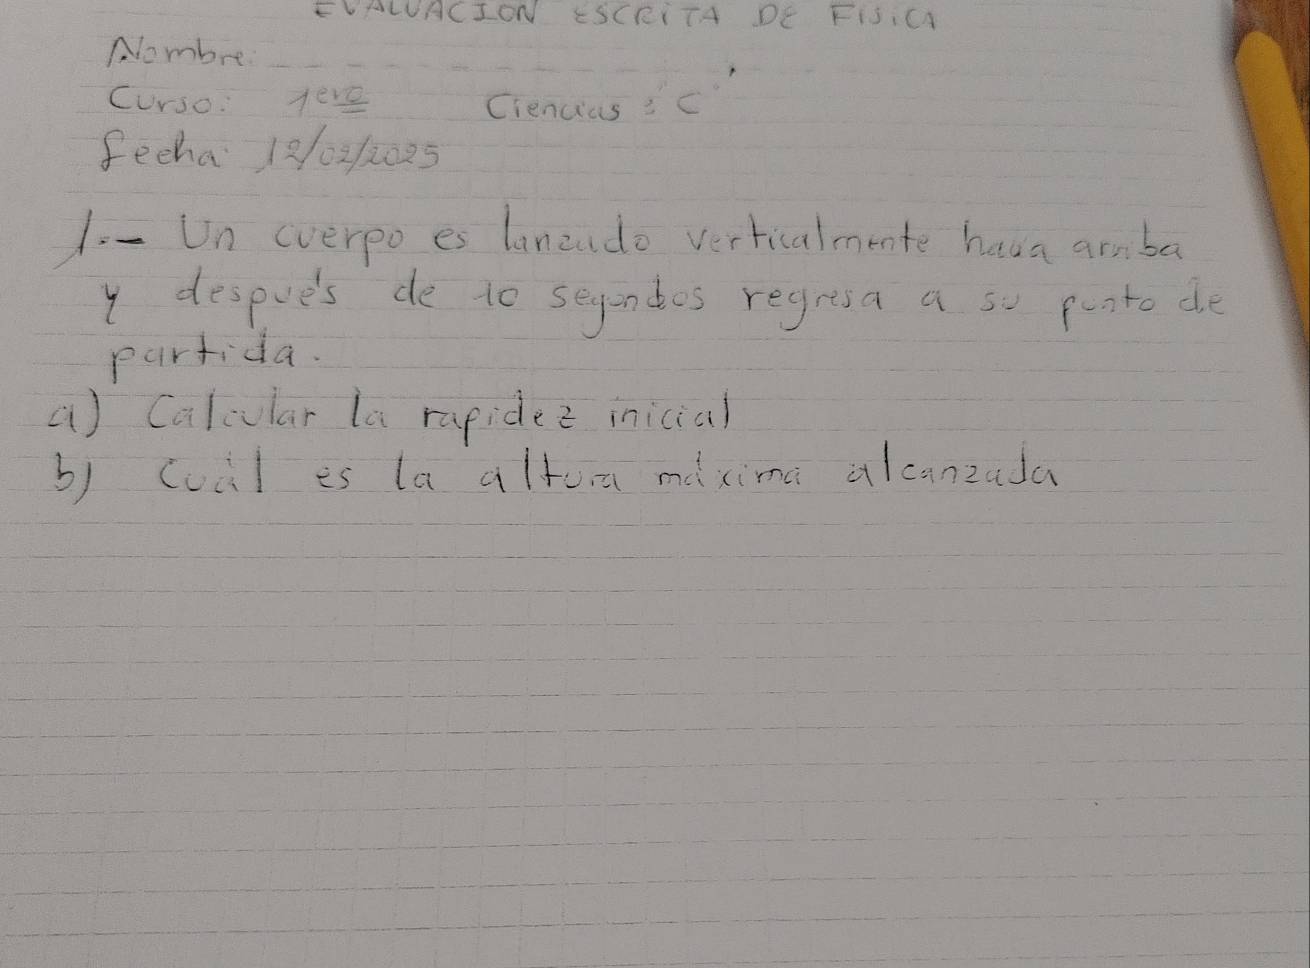 EVALUACION ESCRITA DE FISICA
Nombre:
Curso: 1ero Ciencias: "C"
fecha: 12/02/2025
1.- Un cuerpo es lanzado verticalmente hacia arriba
y después de 10 segundos regresa a su punto de
partida.
a) Calcular la rapidez inicial
b) cuál es la altura máxima alcanzada